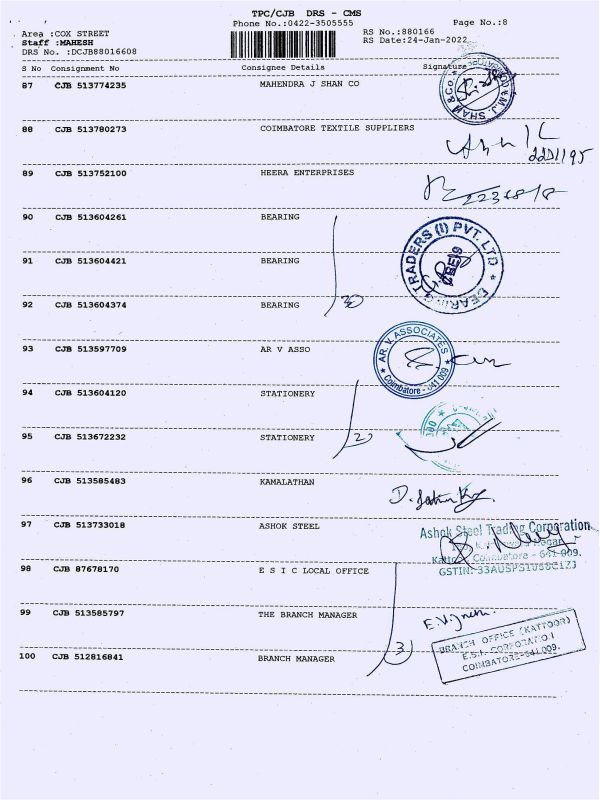 TPC/CJB DRS - CMS
Phone No.:0422-3505555
Page No.:8
Area :COX STREET
RS No.:880166
Staff :MAHESH
RS Date:24-Jan-2022
DRS No. :DCJB88016608
S No Consignment No Consignee Details Signature
87 CJB 513774235 MAHENDRA J SHAN CO
M.J. SHAH & Co.
88 CJB 513780273 COIMBATORE TEXTILE SUPPLIERS
89 CJB 513752100 HEERA ENTERPRISES
90 CJB 513604261 BEARING
91 CJB 513604421 BEARING
BEARING TRADERS (I) PVT. LTD
92 CJB 513604374 BEARING
93 CJB 513597709 AR V ASSO
AR. V. ASSOCIATES
Coimbatore - 641 009
94 CJB 513604120 STATIONERY
95 CJB 513672232 STATIONERY
2
96 CJB 513585483 KAMALATHAN
97 CJB 513733018 ASHOK STEEL
Ashok Steel Trading Corporation
Coimbatore - 641 009.
98 CJB 87678170 E S I C LOCAL OFFICE
99 CJB 513585797 THE BRANCH MANAGER
3
BRANCH OFFICE (KATTOOR)
E.S.I. CORPORATION
COIMBATORE-641 009.
100 CJB 512816841 BRANCH MANAGER